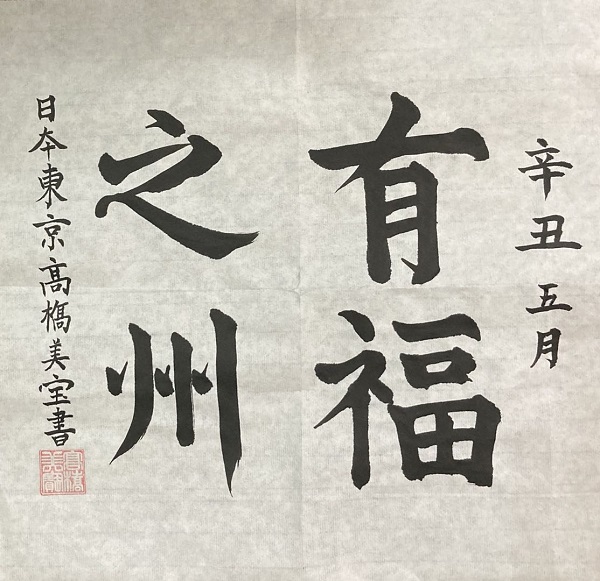 辛丑五月
有福
之州
日本東京髙橋美宝書